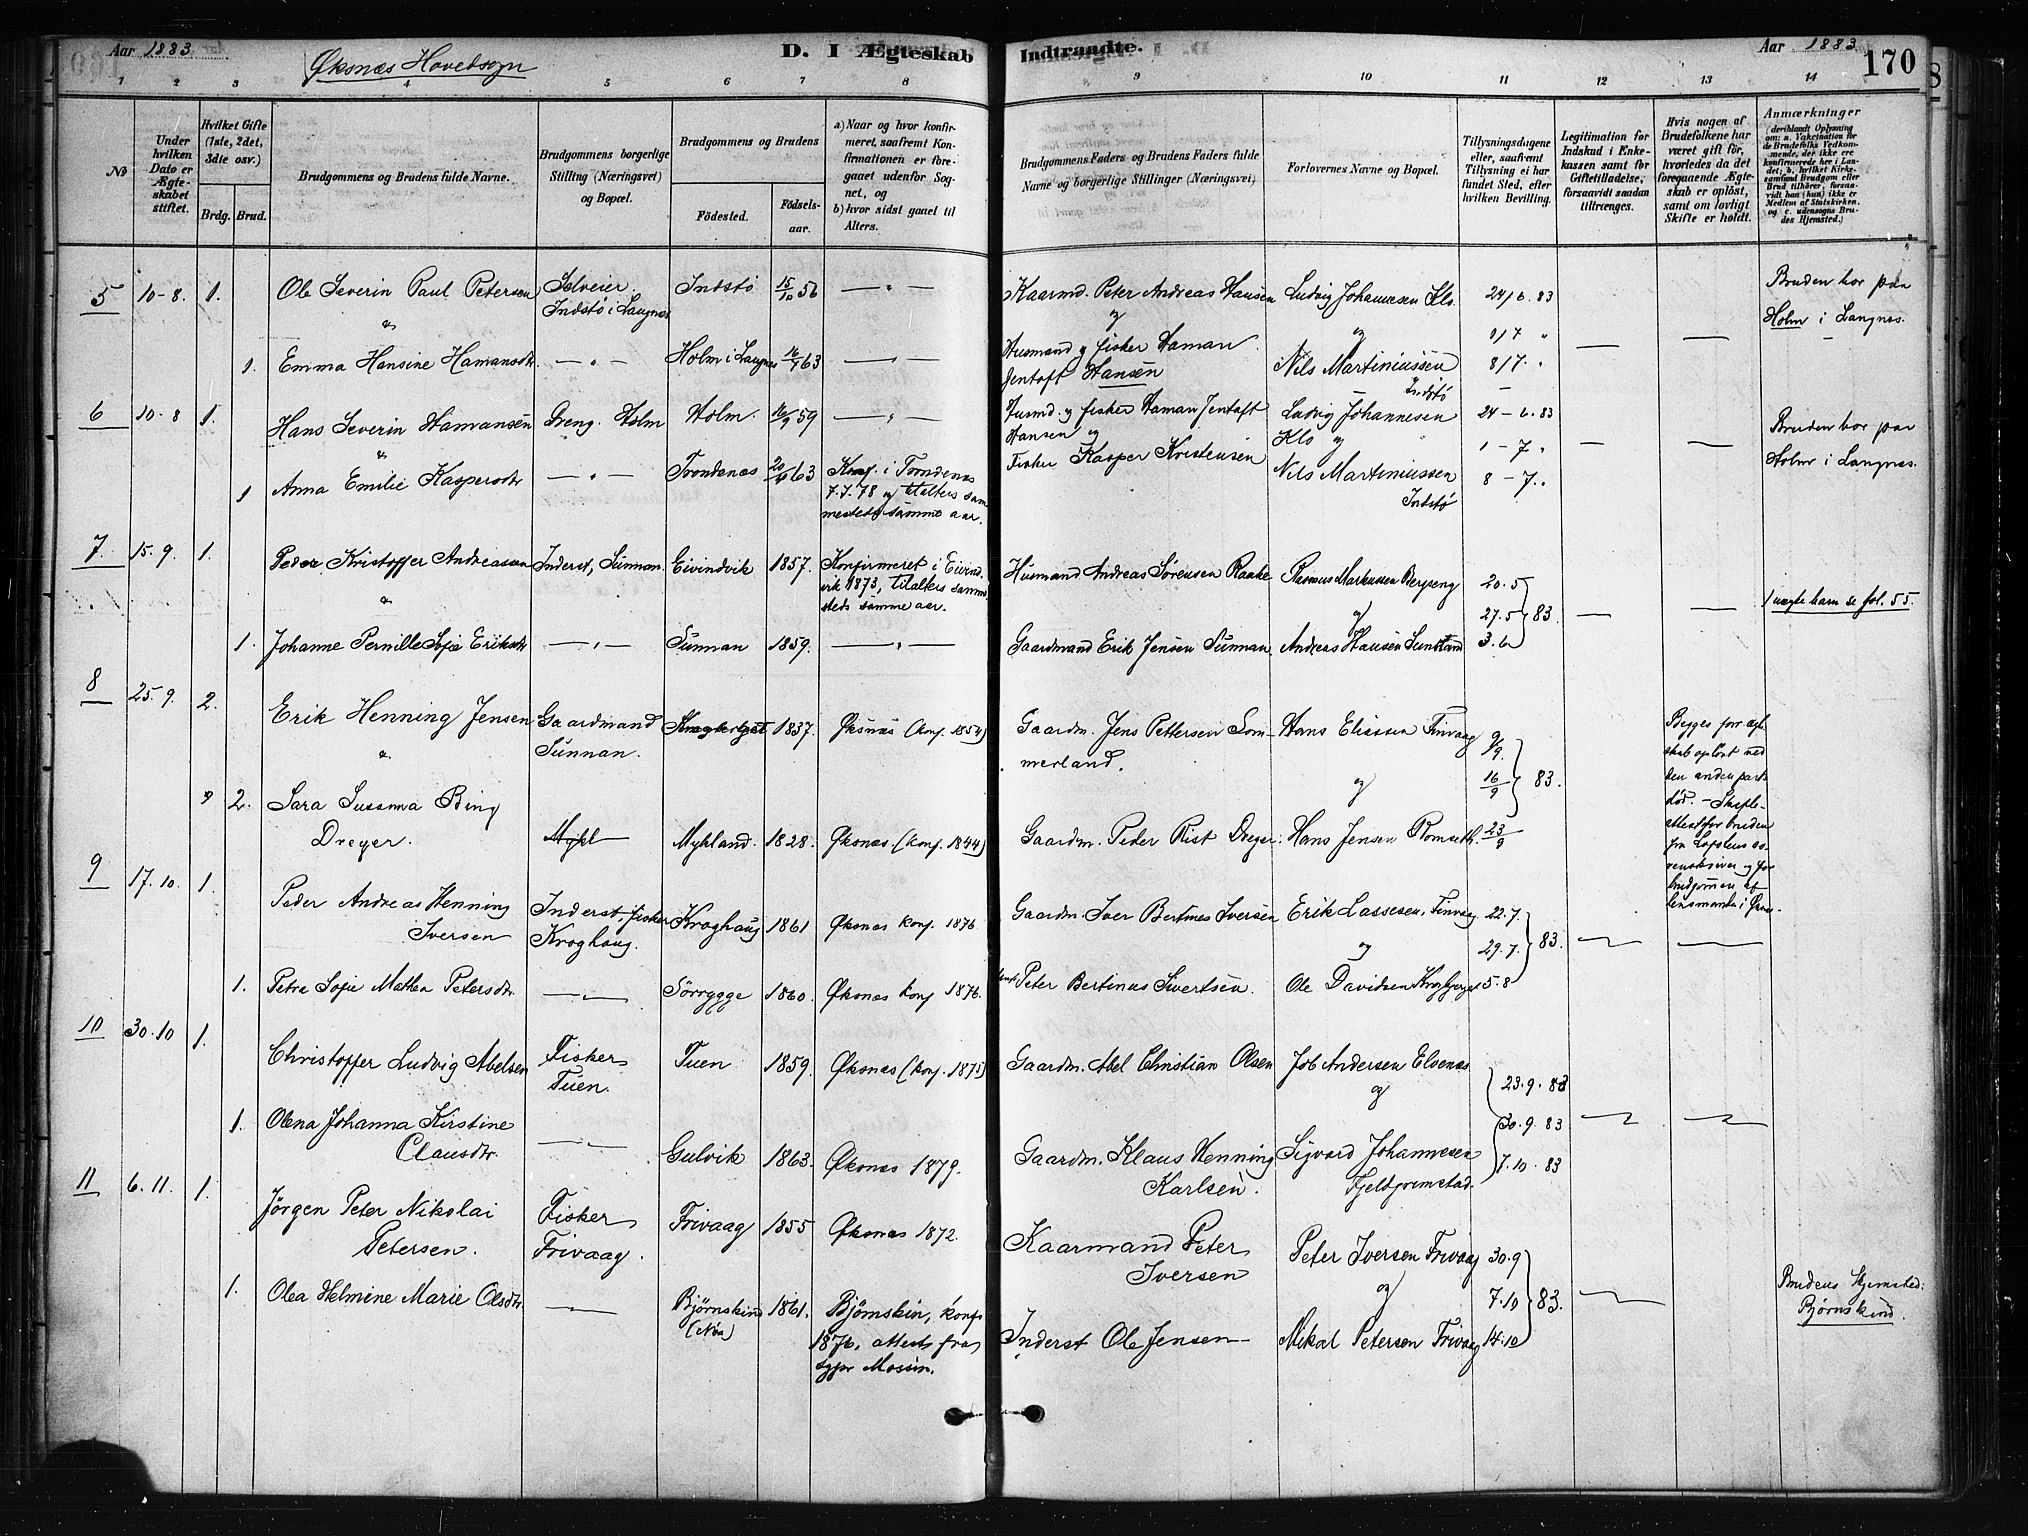 Aar 1883.
Øksnæs Hovedsogn
D. I Ægteskab Indtraadte.
Aar 1883
170
1 2 3 4 5 6 7 8 9 10 11 12 13 14
No
Under hvilken Dato er Ægteskabet stiftet.
Hvilket Gifte (1ste, 2det, 3die osv.)
Brdg. Brud.
Brudgommens og Brudens fulde Navne.
Brudgommens borgerlige Stilling (Næringsvei) og Bopæl.
Brudgommens og Brudens
Födested.
Födselsaar.
a) Naar og hvor konfirmeret, saafremt Konfirmationen er foregaaet udenfor Sognet, og
b) hvor sidst gaaet til Alters.
Brudgommens Faders og Brudens Faders fulde Navne og borgerlige Stillinger (Næringsvei)
Forlovernes Navne og Bopæl.
Tillysningsdagene eller, saafremt Tillysning ei har fundet Sted, efter hvilken Bevilling.
Legitimation for Indskud i Enkekassen samt for Giftetilladelse, forsaavidt saadan tiltrænges.
Hvis nogen af Brudefolkene har været gift för, hvorledes da det foregaaende Ægteskab er oplöst, samt om lovligt Skifte er holdt.
Anmærkninger
(deriblandt Oplysning om: a. Vakcination for de Brudefolks Vedkommende, der ikke ere konfirmerede her i Landet; b. hvilket Kirkesamfund Brudgom eller Brud tilhörer, forsaavidt han (hun) ikke er Medlem af Statskirken, og c. udensogns Brudes Hjemsted.)
5 10-8. 1. Ole Severin Paul Petersen Selveier. Indstø i Langnes Indstø 15/10 56 — " —
Kaarmd. Peter Andreas Hansen Ludvig Johannesen Klo. 24/6. 83
& og og 1/7 "
Bruden bor paa Holm i Langnes.
1. Emma Hansine Hamansdtr. — " — Holm i Langnes 16/4 63 — " —
Husmand og fisker Haman Jentoft Hansen Nils Martiniussen Indstø 8/7. "
6 10-8 1. Hans Severin Hamansen Dreng. Holm Holm. 16/9 59 — " —
Husmd. og fisker Haman Jentoft Hansen og Ludvig Johannesen Klo og 24-6.83
1-7 "
Bruden bor paa Holm i Langnes.
& 1 Anna Emilie Kaspersdtr — " — Trondenæs 20/4 63 Konf. i Trondenæs 7.7.78 og tilalters sammesteds samme aar.
Fisker Kasper Kristensen Nils Martiniussen Indstø 8-7. "
7. 15.9. 1. Peder Kristoffer Andreassen Inderst, Sunnan. Eivindvik 1857. Konfirmeret i Eivindvik 1873, tilalters sammesteds samme aar.
Husmand Andreas Sørensen Raake Rasmus Markussen Bergseng 20.5
& og 27.5 83
1 uægte barn se fol. 55.
1. Johanne Pernille Sofie Eriksdtr — " — Sunnan 1859. — " —
Gaardmand Erik Jensen Sunnan. Andreas Hansen Sunnan 3.6
8 25.9. 2. Erik Henning Jensen Gaardmand Sunnan. 1837. Øksnæs (konf. 1854)
Gaardm. Jens Pettersen Sommerland. Hans Eliassen Finvaag 9/9.
& og 16/9 83.
Begges forr. ægteskab opløst ved den anden parts død. - Skifteattest for bruden fra Lofotens sorenskriver og for brudgommen af lensmanden i Øxnes.
2. Sara Susanna Bing Dreyer. Mykl Mykland. 1828. Øksnæs. (konf. 1844)
Gaardm. Peder Rist Dreyer. Hans Jensen Romseth. 23/9
9 17.10. 1. Peder Andreas Henning Iversen Inderst, fisker Kroghaug. Kroghaug 1861 Øksnæs konf. 1876.
Gaardm. Iver Bertinus Iversen Erik Lassesen, Finvaag 22.7.
og 29.7. 83.
1. Petra Sofie Mathea Petersdtr. — " — Sörrygge 1860. Øksnæs konf 1876.
Peter Bertinus Sivertsen. Ole Davidsen Krogberget 5.8
10 30.10 1. Christoffer Ludvig Abelsen Fisker Tuen. Tuen 1859. Øksnæs (konf. 1875)
Gaardm. Abel Christian Olsen Job Andersen Elvenæs og 23.9.83
30.9.83
1. Olena Johanna Kirstine Clausdtr. — " — Gulvik 1863. Øksnæs 1879.
Gaardm. Klaus Henning Karlsen. Sigvard Johannesen Fjeldgrimstad. 7.10 83
11 6.11. 1. Jørgen Peter Nikolai Petersen. Fisker Frivaag. Frivaag 1855 Øksnæs 1872.
Kaarmand Peter Iversen Peter Iversen Frivaag 30.9
og 7.10 83.
Brudens Hjemsted: Bjørnskind.
1. Olea Helmine Marie Olsdtr. — " — Bjørnskind 1861. Bjørnskin, konf 1876, attest fra Mossin.
Inderst Ole Jensen - Mikal Petersen Frivaag 14.10